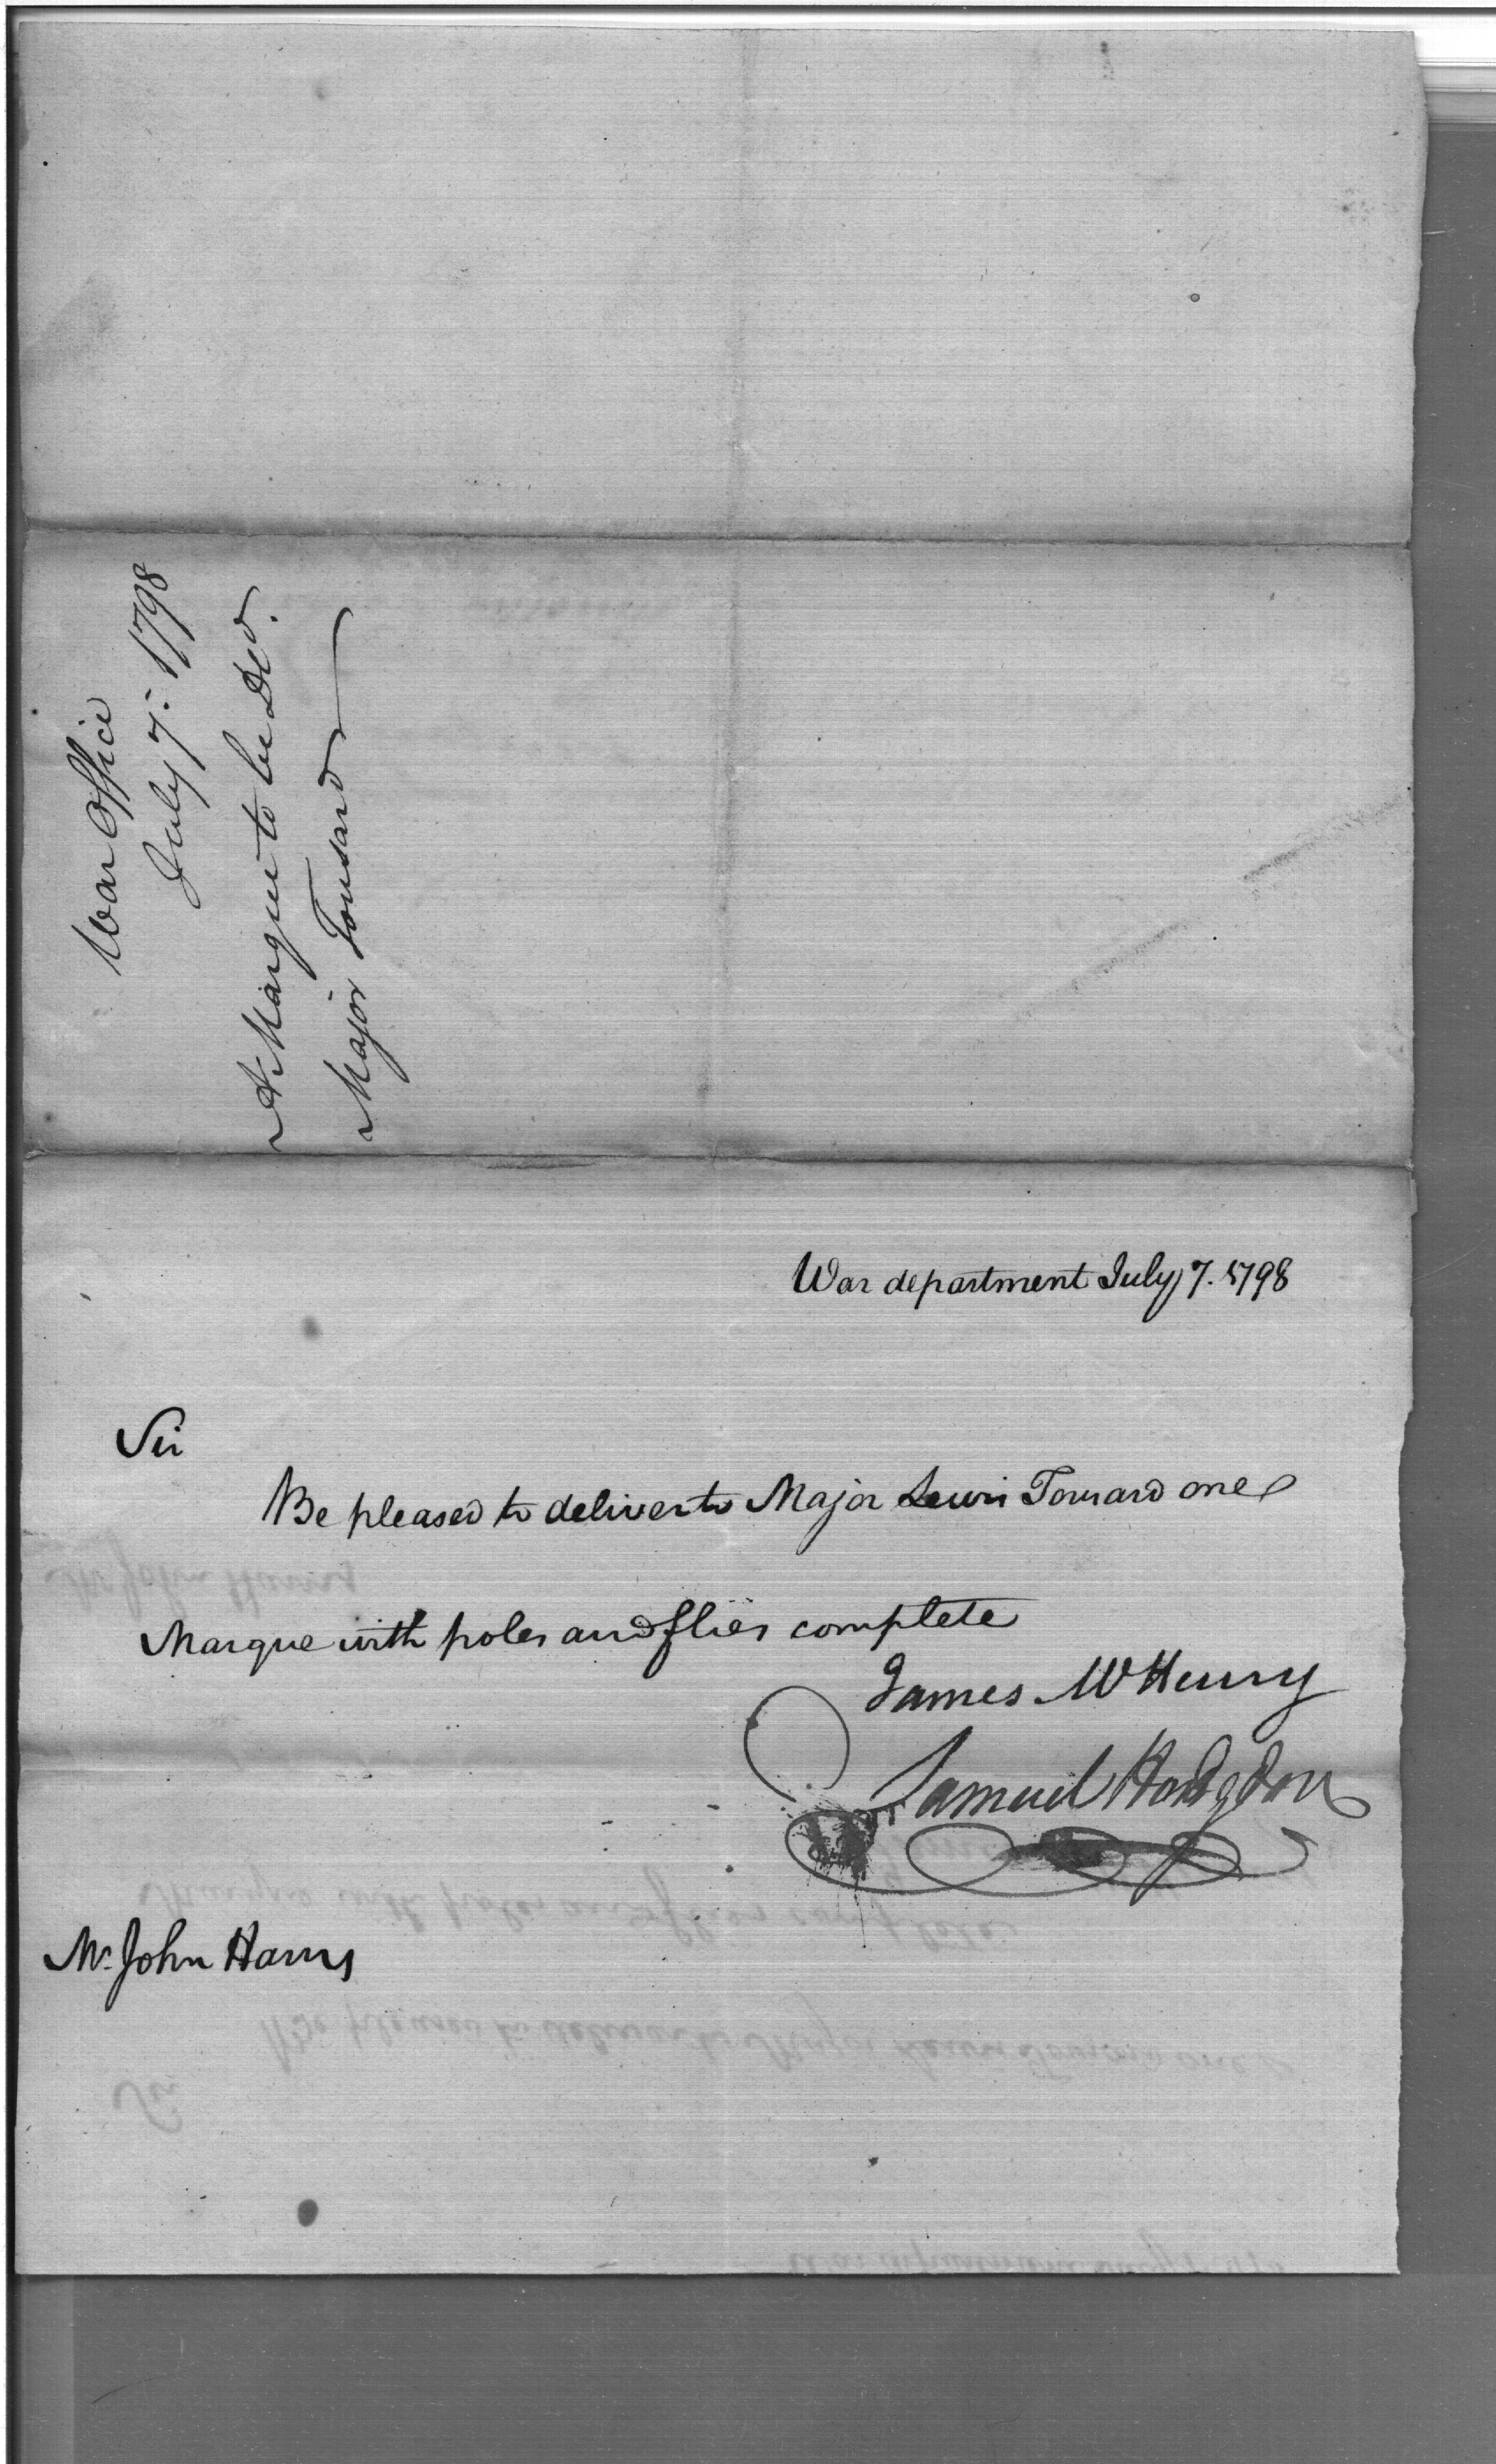 War Office
July 7. 1798
A Marque to be Dld.
Major Tousard
War department July 7. 1798
Sir
Be pleased to deliver to Major Lewis Tousard one
Marque with poles and flies complete
James McHenry
Samuel Hodgdon
Mr. John Harris